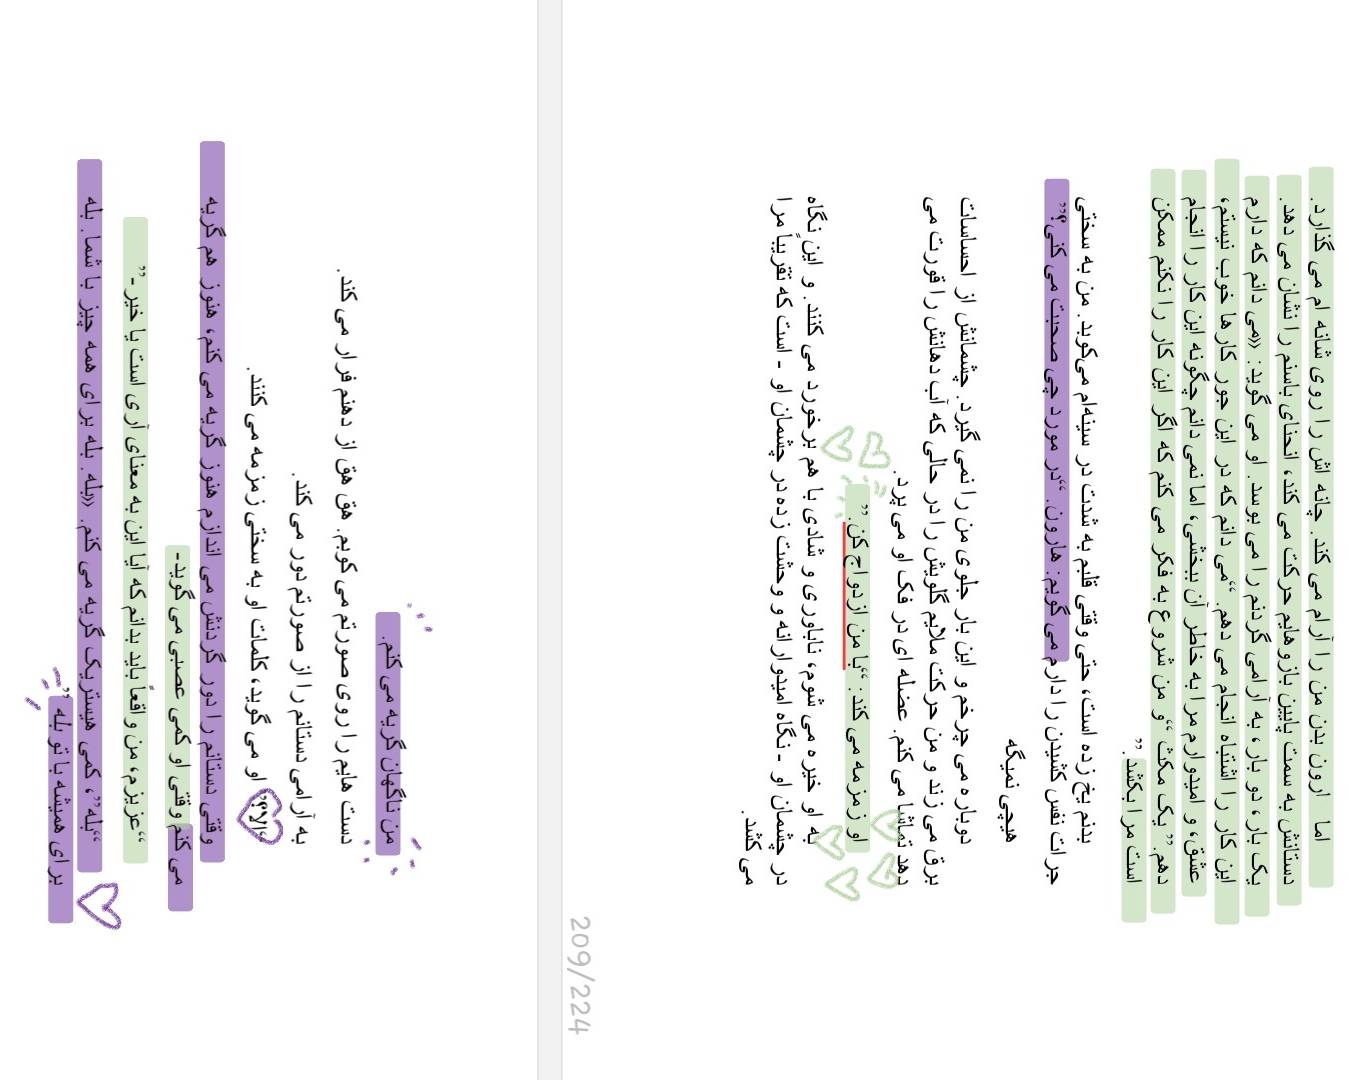 اما ارون بدن من را آرام می کند. چانه اش را روی شانه ام می گذارد.
دستانش به سمت پایین بازوهایم حرکت می کند، انحنای باسنم را نشان می دهد.
یک بار، دو بار، به آرامی گردنم را می بوسد. او می گوید: «می دانم که دارم
این کار را اشتباه انجام می دهم. “می دانم که در این جور کارها خوب نیستم،
عشق، و امیدوارم مرا به خاطر آن ببخشی، اما نمی دانم چگونه این کار را انجام
دهم. ” یک مکث “و من شروع به فکر می کنم که اگر این کار را نکنم ممکن
است مرا بکشد. ”
بدنم یخ زده است، حتی وقتی قلبم به شدت در سینه‌ام می‌کوبد. من به سختی
جرات نفس کشیدن را دارم می گویم: هارون. “در مورد چی صحبت می کنی؟”
هیچی نمیگه
دوباره می چرخم و این بار جلوی من را نمی گیرد. چشمانش از احساسات
برق می زند و من حرکت ملایم گلویش را در حالی که آب دهانش را قورت می
دهد تماشا می کنم. عضله ای در فک او می پرد.
او زمزمه می کند: “با من ازدواج کن. ”
به او خیره می شوم، ناباوری و شادی با هم برخورد می کنند. و این نگاه
در چشمان او - نگاه امیدوارانه و وحشت زده در چشمان او - است که تقریباً مرا
می کشد.
209/224
من ناگهان گریه می کنم.
دست هایم را روی صورتم می کوبم. هق هق از دهنم فرار می کند.
به آرامی دستانم را از صورتم دور می کند.
“الا؟” او می گوید، کلمات او به سختی زمزمه می کنند.
وقتی دستانم را دور گردنش می اندازم هنوز گریه می کنم، هنوز هم گریه
می کنم وقتی او کمی عصبی می گوید-
“عزیزم، من واقعاً باید بدانم که آیا این به معنای آری است یا خیر -”
“بله”، کمی هیستریک گریه می کنم. «بله. بله برای همه چیز با شما. بله
برای همیشه با تو بله ”